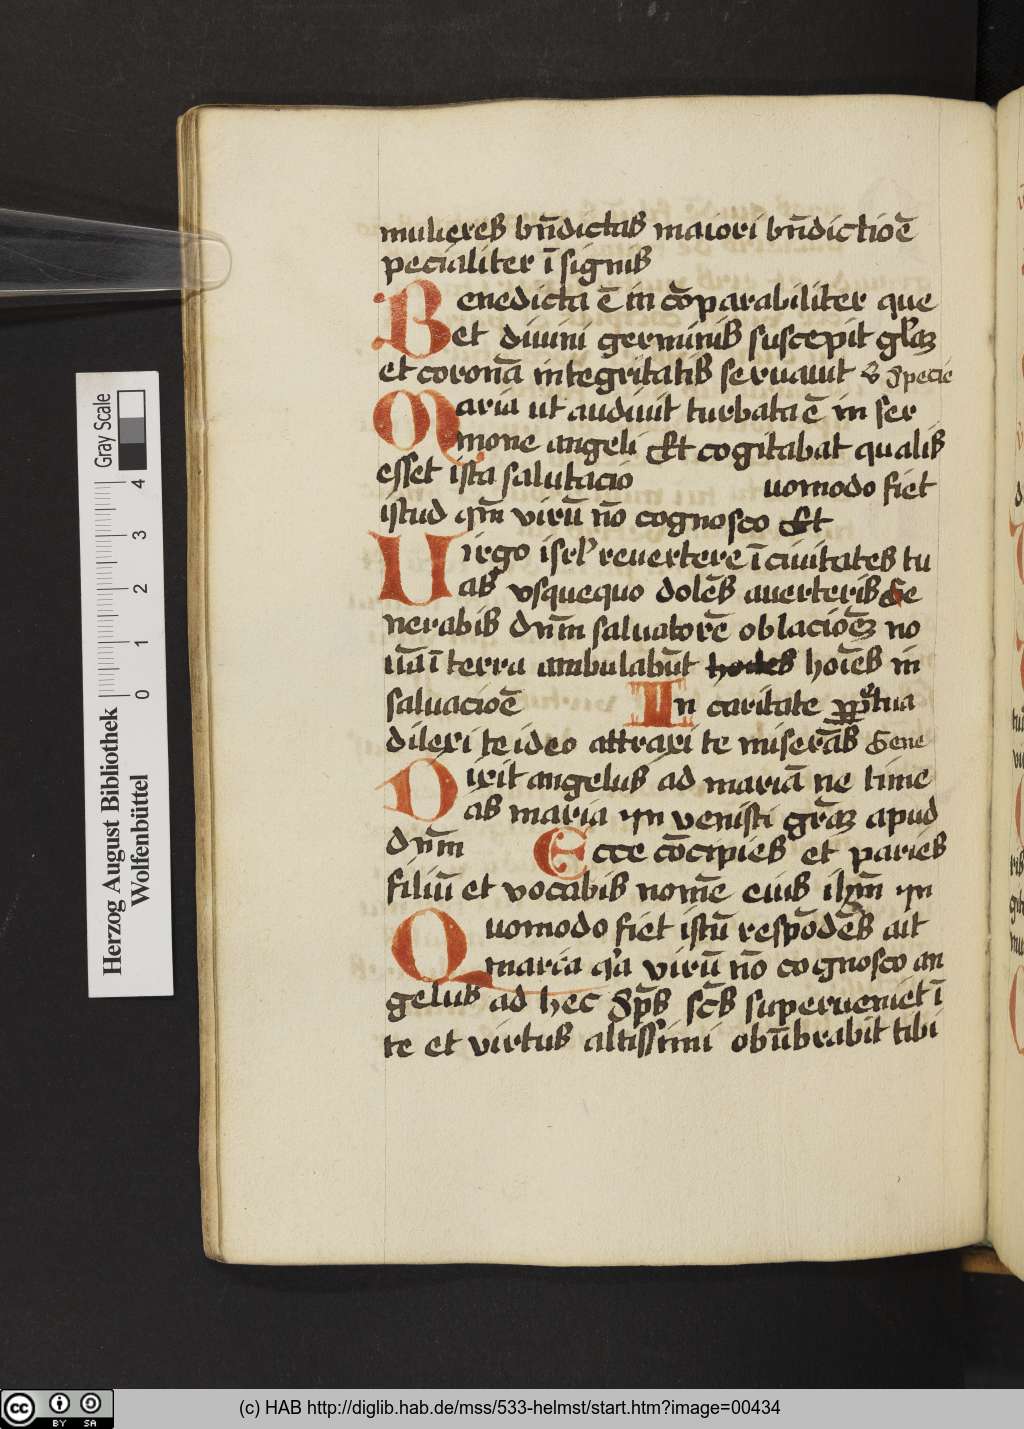 mulieres bn̄dictas maiori bn̄dictioē
pecialiter ī signis
Benedicta ē in cōparabiliter que
et diuini germinis suscepit
et coronā integritatis seruauit specie
Maria ut audiuit turbata ē in ser
mone angeli Et cogitabat qualis
esset ista salutacio uomodo fiet
istud qm̄ virū nō cognosco Et
Uirgo isrl' reuertere ī ciuitates tu
as vsquequo dolēs auerteris Ge
nerabis dn̄m saluatorē oblacioēꝫ no
uā ī terra ambulabūt hoīes in
saluacioē In caritate tua
dilexi te ideo attraxi te miserās Gene
Dixit angelus ad mariā ne time
as maria venisti grāꝫ apud
dn̄m Ecce cōcipies et paries
filiū et vocabis nomē eius ihm̄
Quomodo fiet istū respōdēs ait
maria q'a virū nō cognosco an
gelus ad hec sp̄s sc̄s superueniet ī
te et virtus altissimi obūbrabit tibi
Herzog August Bibliothek
Wolfenbüttel
0 1 2 3 4
Gray Scale
cc BY SA
(c) HAB http://diglib.hab.de/mss/533-helmst/start.htm?image=00434